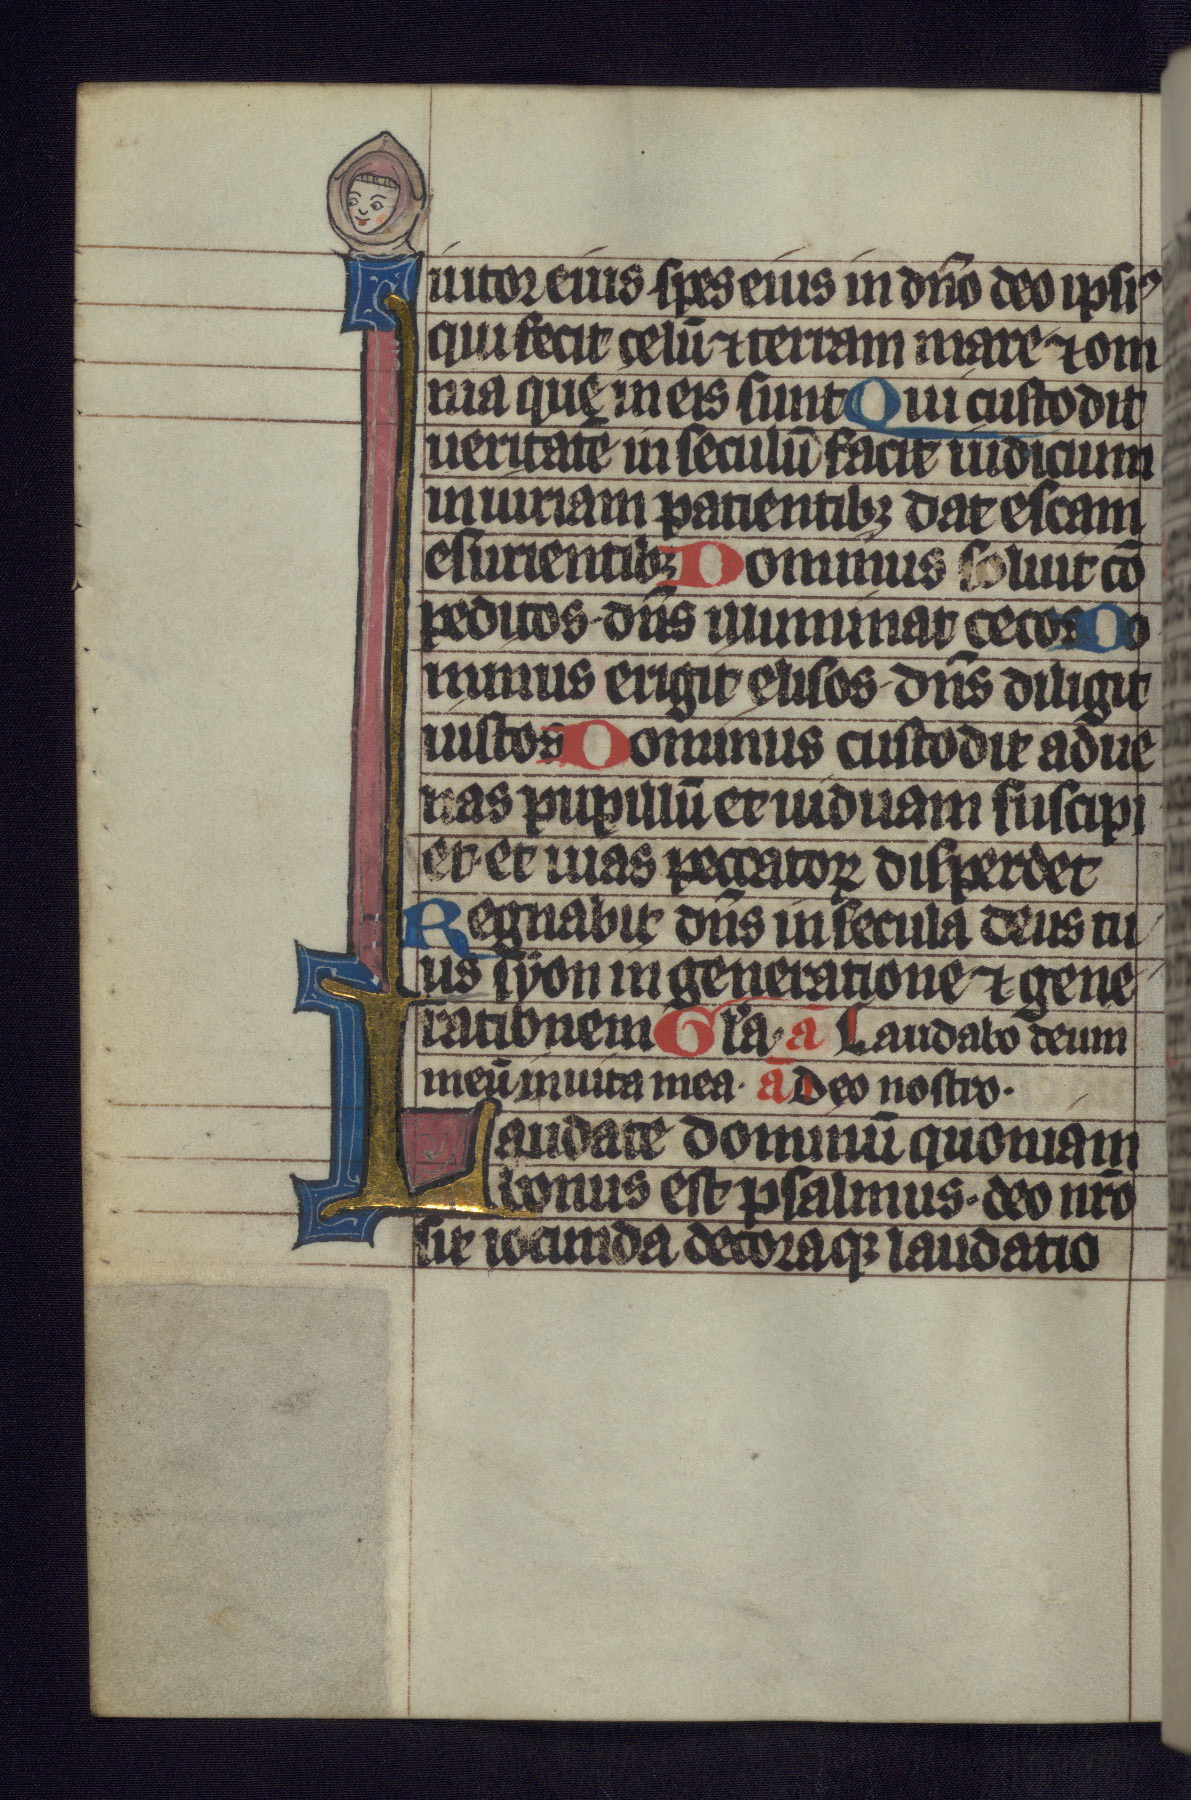 iutor eius spes eius in dn̄o deo ipsiꝰ
qui fecit celū ⁊ terram mare ⁊ om
nia quę in eis sunt Qui custodit
ueritatē in seculū facit iudicium
iniuriam patientibꝫ dat escam
esurientibꝫ Dominus soluit cō
peditos· dn̄s illuminat cecos Do
minus erigit elisos· dn̄s diligit
iustos Dominus custodit adue
nas pupillū et uiduam suscipi
et· et uias peccatoꝝ disperdet
Regnabit dn̄s in secula deus tu
us syon in generatione ⁊ gene
rationem Gl̄a· ā Laudabo deum
meū in uita mea· ā Deo nostro·
Laudate dominū quoniam
bonus est psalmus· deo nr̄o
sit iocunda decoraqꝫ laudatio